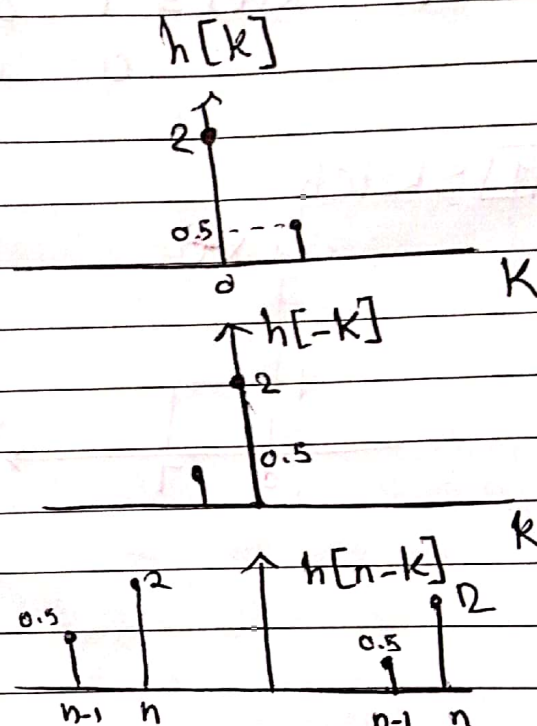 h[k]
2
0.5
0
K
h[-k]
2
0.5
k
h[n-k]
0.5 2 0.5 2
n-1 n n-1 n